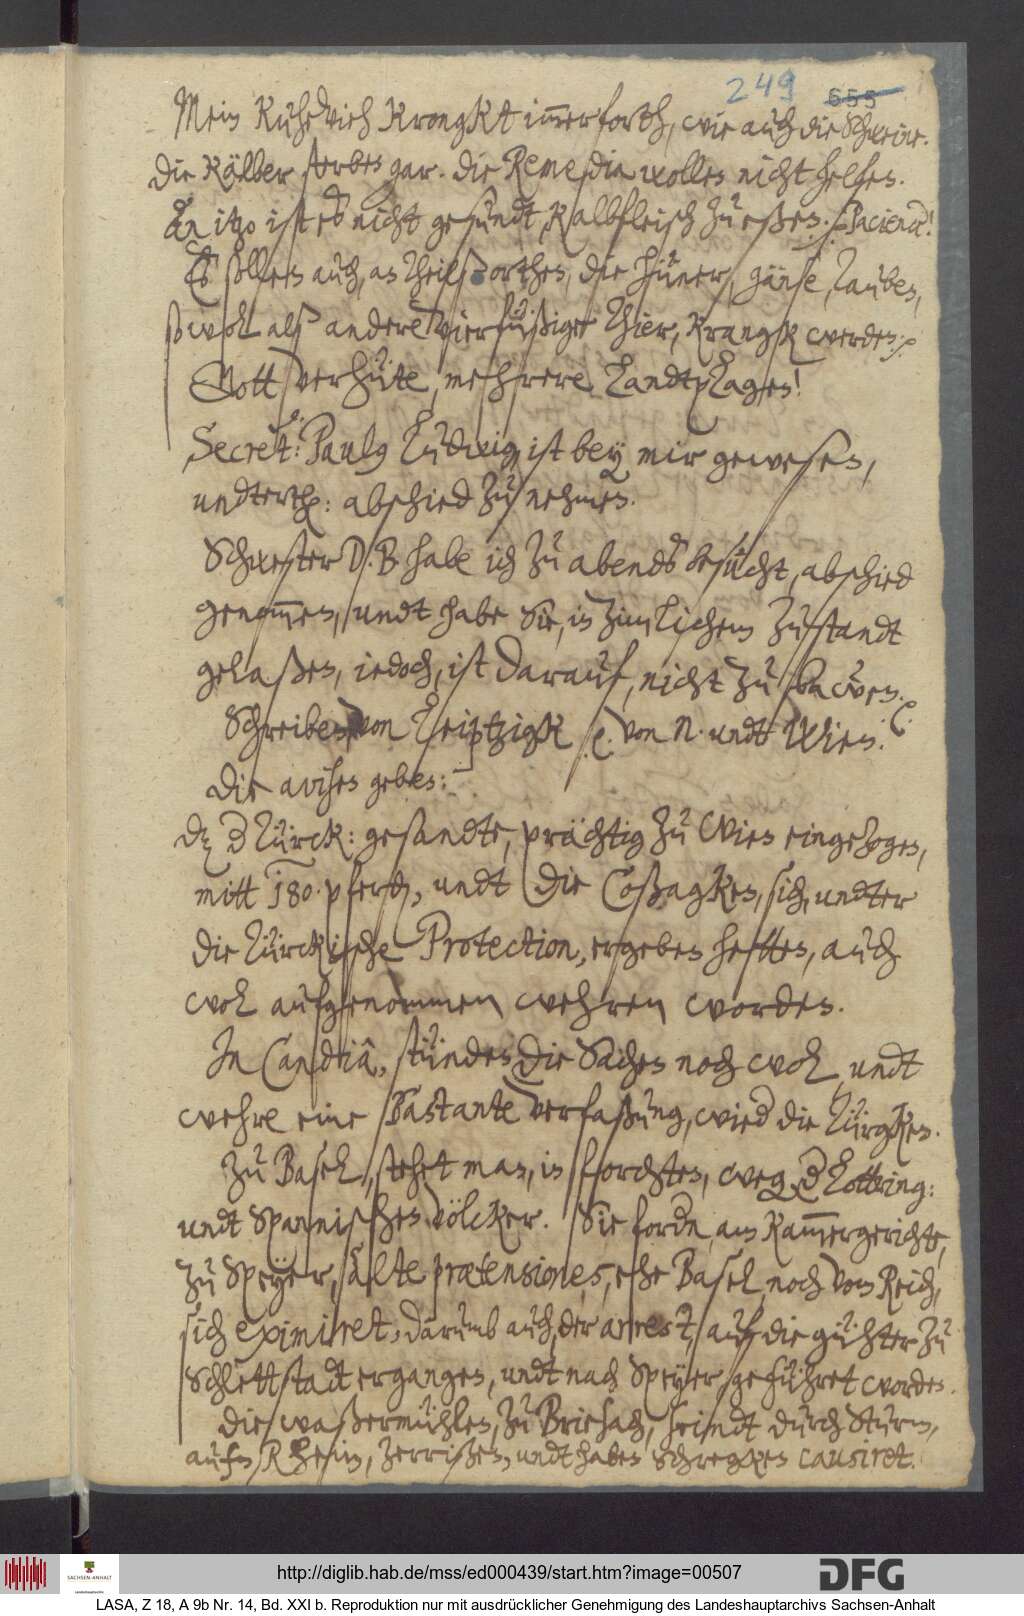 249 655
Mein Kuhevieh Krangkt im̄erforth, wie auch die Schweine.
die Kälber sterben gar. die Remedia wollen nicht helfen.
An itzo ist es nicht gesundt, Kalbfleisch zu eßen. Pacienza!
Es sollen auch, an theilß orthen, die hüner, gänse, Tauben,
so wol alß andere vierfüßige Thier, Krangk werden.
Gott verhüte, mehrere Landtplagen!
Secret: Paulus Ludwig, ist bey mir gewesen,
undterth: abschied zu nehmen.
Schwester D. B. habe ich zu abends besucht, abschied
genom̄en, undt habe Sie, in zimlichem zustandt
gelaßen, iedoch, ist darauf, nicht zu bawen.
Schreiben von Leiptzigk von N. undt Wien.
die avisen geben:
dz d Türck: gesandte, prächtig zu Wien eingezogen,
mitt 180. pferden, undt die Coßagken, sich, undter
die Türckische Protection, ergeben hetten, auch
wol aufgenommen wehren worden.
In Candia, stünden die Sachen noch wol, undt
wehre eine bastante verfaßung, wied die Türgken.
Zu Basel, stehet man, in forchten, weg. d Lottring:
undt Spannischen völcker. Sie fordn, am Kam̄ergerichte,
zu Speyer, alte prætensiones, ehe Basel, noch vom Reich,
sich eximiret, darumb auch, der arrest, auf die gühter zu
Schlettstadt ergangen, undt nach Speyer, geführet worden.
die waßermühlen, zu Brisach, seindt durch Sturm,
aufm Rhein, zerrißen, undt haben Schregken causiret.
http://diglib.hab.de/mss/ed000439/start.htm?image=00507
SACHSEN-ANHALT
DFG
LASA, Z 18, A 9b Nr. 14, Bd. XXI b. Reproduktion nur mit ausdrücklicher Genehmigung des Landeshauptarchivs Sachsen-Anhalt